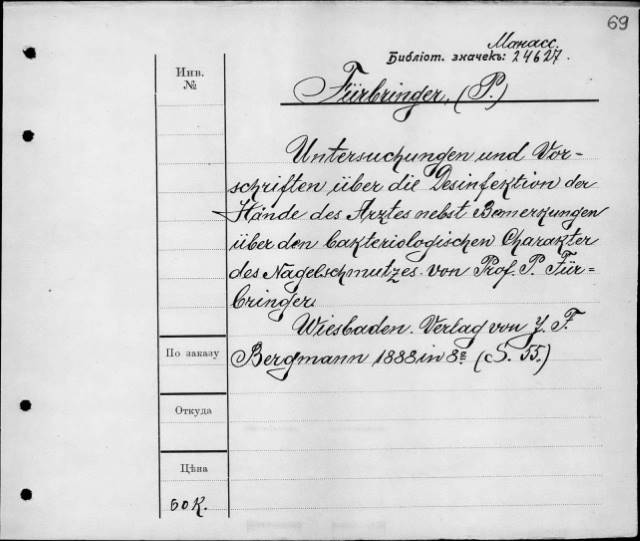 69
Манасс.
Библіот. значекъ: 24627.
Инв.
№
Fürbringer, (P.)
Untersuchungen und Vor-
schriften über die Desinfektion der
Hände des Arztes nebst Bemerkungen
über den bakteriologischen Charakter
des Nagelschmutzes von Prof. P. Für=
bringer.
Wiesbaden. Verlag von J. F.
Bergmann 1888 in 8º (S. 55.)
По заказу
Откуда
Цѣна
60 К.